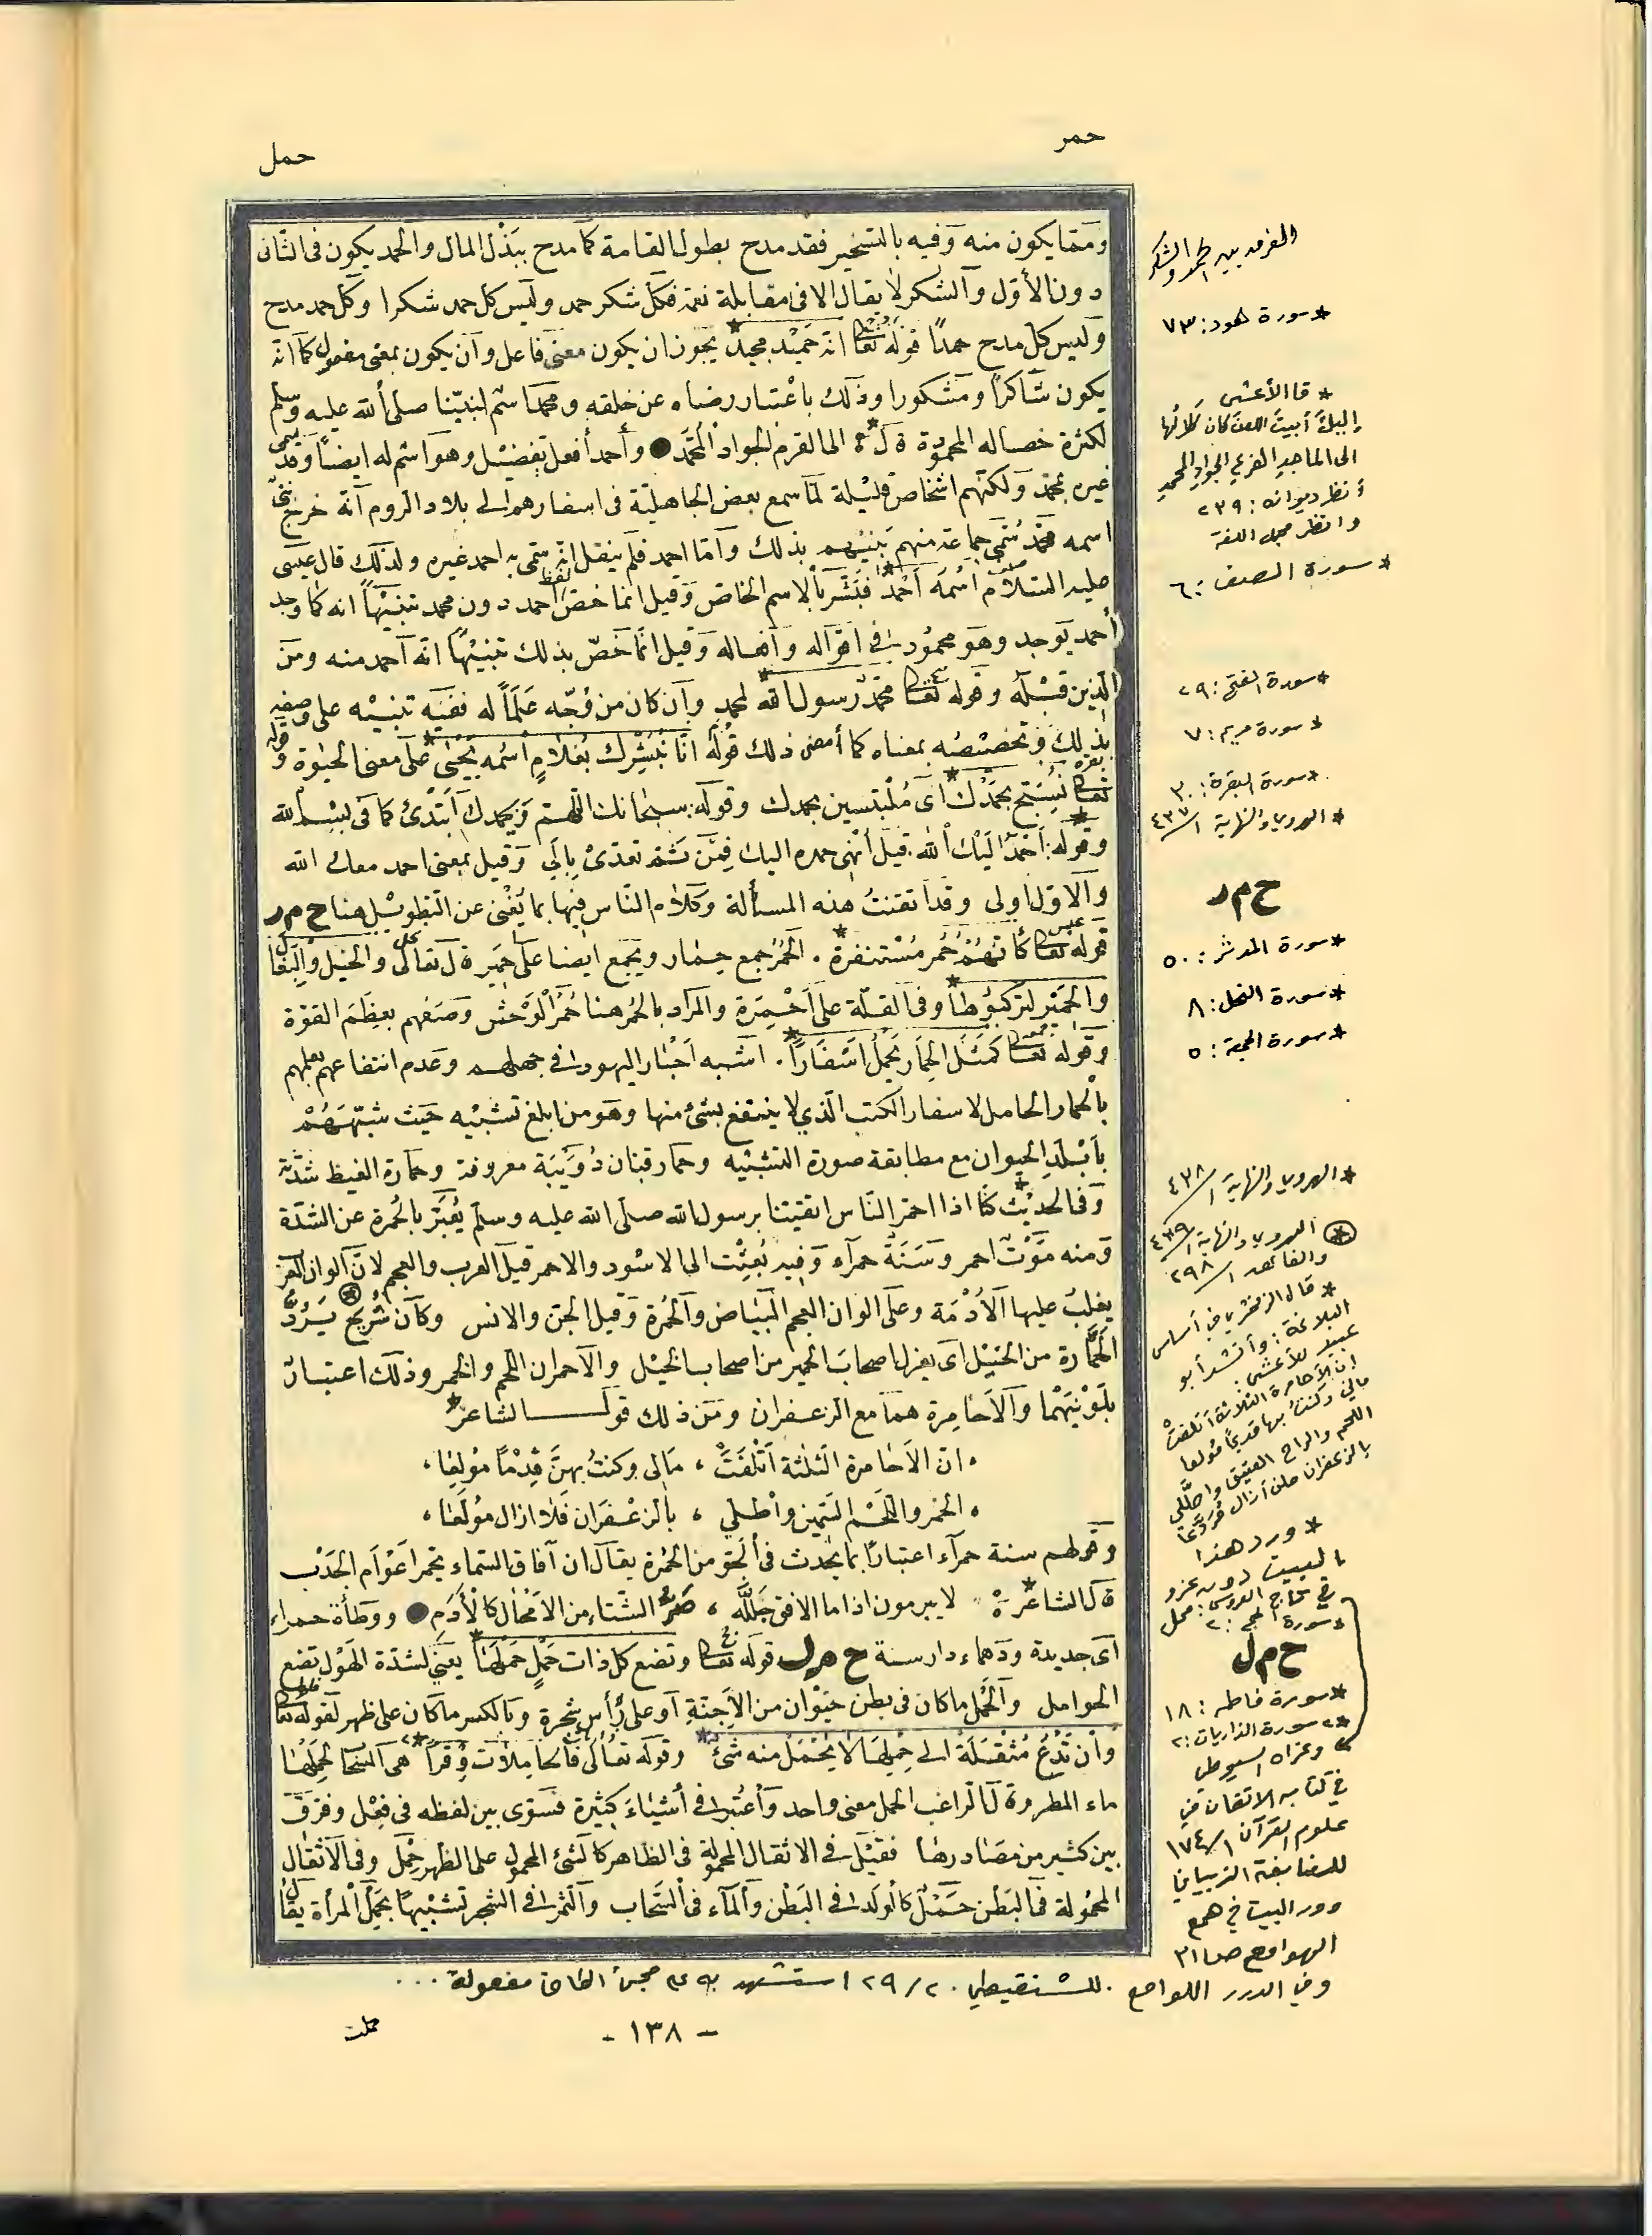 حمر
حمل
ومما يكون منه وفيه بالتسخير فقد مدح بطول القامة كما مدح ببذل المال والحمد يكون فى الثانى
دون الأول والشكر لا يقال الا فى مقابلة نعمة فكل شكر حمد وليس كل حمد شكرا وكل حمد مدح
وليس كل مدح حمدًا قوله تعا انه حَمِيْد مجيد * يجوز ان يكون معنى فاعل وان يكون بمعنى مفعول كما انه
يكون شاكرًا ومشكورا وذلك باعتبار رضاه عن خلقه ومحمد اسم لنبيّنا صلى الله عليه وسلم
لكثرة خصاله المحمودة قال * الى القرم الجواد المحمّد ● وأحمد أفعل تفضيل وهو اسم له ايضًا وقد سمى
غيره بمحمد ولكنهم اشخاص قليلة لما سمع بعض الجاهلية فى اسفارهم الى بلاد الروم أنه خرج نبىّ
اسمه محمد سُمّى جماعة منهم بَنيْهم بذلك وامّا احمد فلم ينقل انه سمّى به احد غيره ولذلك قال عيسى
عليه السلام اسْمُهُ أَحْمَدُ * فَبَشَّر بالاسم الخاص وقيل انما خص لفظ احمد دون محمد تنبيهًا انه كما وجد
أحمد يوجد وهو محمُود فى اقواله وافعاله وقيل انّما خَصّ بذلك تنبيهًا انّه أحمد منه ومن
الذين قبْله وقوله تعا محمّد رسول الله * لمحمد وان كان من وُجّه عَلَمًا له ففيه تنبيْه على وصفه
بذلك وتخصيْصُه بمعناه كما أمضى ذلك قوْلُه انّا نُبَشِّرك بغلامٍ اسْمُه يَحْيٰى * على معنى الحيٰوة وقوله
تعا نُسَبّح بحمْدك * أى مُلْتبسين بحمدك وقوله سبحانك اللّهم وبحمدك أبتدئ كما فى بسم الله
وقوله: أحمَدُ اليْك الله قيل أُنْهى حمده اليك فمِن ثَمّ تعدّىْ بالى وقيل بمعنى احمد معك الله
والاول اولى وقد اتقنتُ هذه المسألة وكلام النّاس فيها بما يُغنى عن التطويل هنا ح م ر
قوله تعا كأنهمْ حُمُر مُسْتنفرة * . الحُمُر جمع حِمَار ويجمع ايضا على حَمِير قال تعالى والخيل والبغال
والحَمْيرَ لتركبُوهَا * وفى القلّة على أَحْمِرَة والمراد بالحُمر هنا حُمُر الْوَحْش وصَفهم بعِظَم القوّة
وقوله تعا كَمَثَل الحِمَار يَحْمِلُ اسْفَارًا * . اشبه احْبَار اليهود فى جهلهم وعدم انتفاعهم بعلمهم
بالحمار الحامل لاسفار الكتب الّذى لا ينتفع بشئ منها وهو من ابلغ تشبيْه حَيث شبّهَهُمْ
بأبْلَدِ الحيوان مع مطابقة صورة التشبْيه وحمار قبّان دُوَيْبَة معروفة وحمارة القيظ شدّته
وفى الحديْث * كنّا اذا احمَر النّاس اتقيْنا برسول الله صلى الله عليه وسلم يُعَبَّر بالحُمرة عن الشدّة
ومنه مَوْت احمر وسَنَةٌ حمراء وفيه بُعِثْت الى الاسْود والاحمر قيل العرب والعجم لان ألوان العرب
يغلبُ عليها الأُدْمَة وعلى الوان العجم البَيَاض والحُمرة وقيل الجنّ والانس وكان شُرَيْح يَردُّ
الحَمَّارة من الخيْل اى يعزل اصحاب الحمير من اصحاب الخيْل والاحمران اللحم والخمر وذلك اعتبارًا
بلَوْنيهْما والاَحَامِرة هما مع الزعفران ومن ذلك قول الشاعر *
، انّ الاَحَامرة الثلثة أتْلَفَتْ ، مَالى وكنتُ بهنّ قِدْمًا مُولعَا ،
، الخمر واللحْم السّمين وأطّلى ، بالزعْفَران فَلا ازال مُولَعَا ،
وقولهم سنة حمراء اعتبارًا بما يحْدث فى الجوّ من الحُمرة يقال ان آفاق السماء تحمر اعْوَام الجَدْب
قال الشاعر * لا يبرمون اذا ما الافق جَلّلَه ، صِرّ الشّتاء من الامْحَال كالأدَم ● ووطأة حمراء
أى جديدة ودهماء دارسة ح م ل قوله تعا وتضع كل ذات حَمْلٍ حَمْلَهَا * يعنى لشدّة الهَوْل تضع
الحوامل والحَمْل ما كان فى بطن حَيْوان من الاَجنّةِ أو على رأس شجرة وبالكسر ما كان على ظهر لقوله تعا
وان تَدْعُ مُثقَلَة الى حِمْلِهَا لا يُحْمَلْ منه شَئ * وقوله تعالى فالحَامِلات وِقْرًا * هى السحاب لحَمْلها
ماء المطر وقال الراغب الحمل معنى واحد واُعْتُبر فى أشيَاءَ كثيرة فسَوّى بين لفظه فى فعْل وفرّق
بين كثير من مصَادرهَا فقيْل فى الاثقال المحمولة فى الظاهر كالشئ المحمول على الظهر حِمْل وفى الاثقال
المحمُولة فى البَطْن حَمْل كالوَلد فى البَطْن والمآء فى السَّحَاب والثمر فى الشجر تشبيهًا بحَمْل المرأة يقال
الفرق بين الحمد والشكر
* سورة هود: ٧٣
* قال الأعشى
إليك أبيت اللعن كان كلالها
الى الماجد الفرع الجواد المحمد
أنظر ديوانه: ٢٣٩
وانظر مجمل اللغة
* سورة الصف: ٦
* سورة الفتح: ٢٩
* سورة مريم: ٧
* سورة البقرة: ٣٠
* الهروي والنهاية ١/٤٣٧
ح م ر
* سورة المدثر: ٥٠
* سورة النحل: ٨
* سورة الجمعة: ٥
* الهروي والنهاية ١/٤٣٨
* الهروي والنهاية ١/٤٣٩
والفائق ١/٢٩٨
* قال الزمخشري في أساس
البلاغة: وأنشد أبو
عبيد للأعشى:
إن الأحامرة الثلاثة أتلفتْ
مالي وكنتُ بها قديمًا مُولعا
اللحم والراح العتيق وأطَّلي
بالزعفران فلن أزال مُرَدَّعا
* ورد هذا
البيت دون عزو
في تاج العروس: محل
* سورة الحج: ٢
ح م ل
* سورة فاطر: ١٨
* سورة الذاريات: ٢
وعزاه السيوطي
في كتابه الاتقان في
علوم القرآن ١/١٧٤
للنابغة الذبياني
وورد البيت في همع
الهوامع ص ٣١
وفي الدرر اللوامع . للشنقيطي . ٢/٢٩ استشهد به على مجئ الكاف مفعولة ...
- ١٣٨ -
حملت